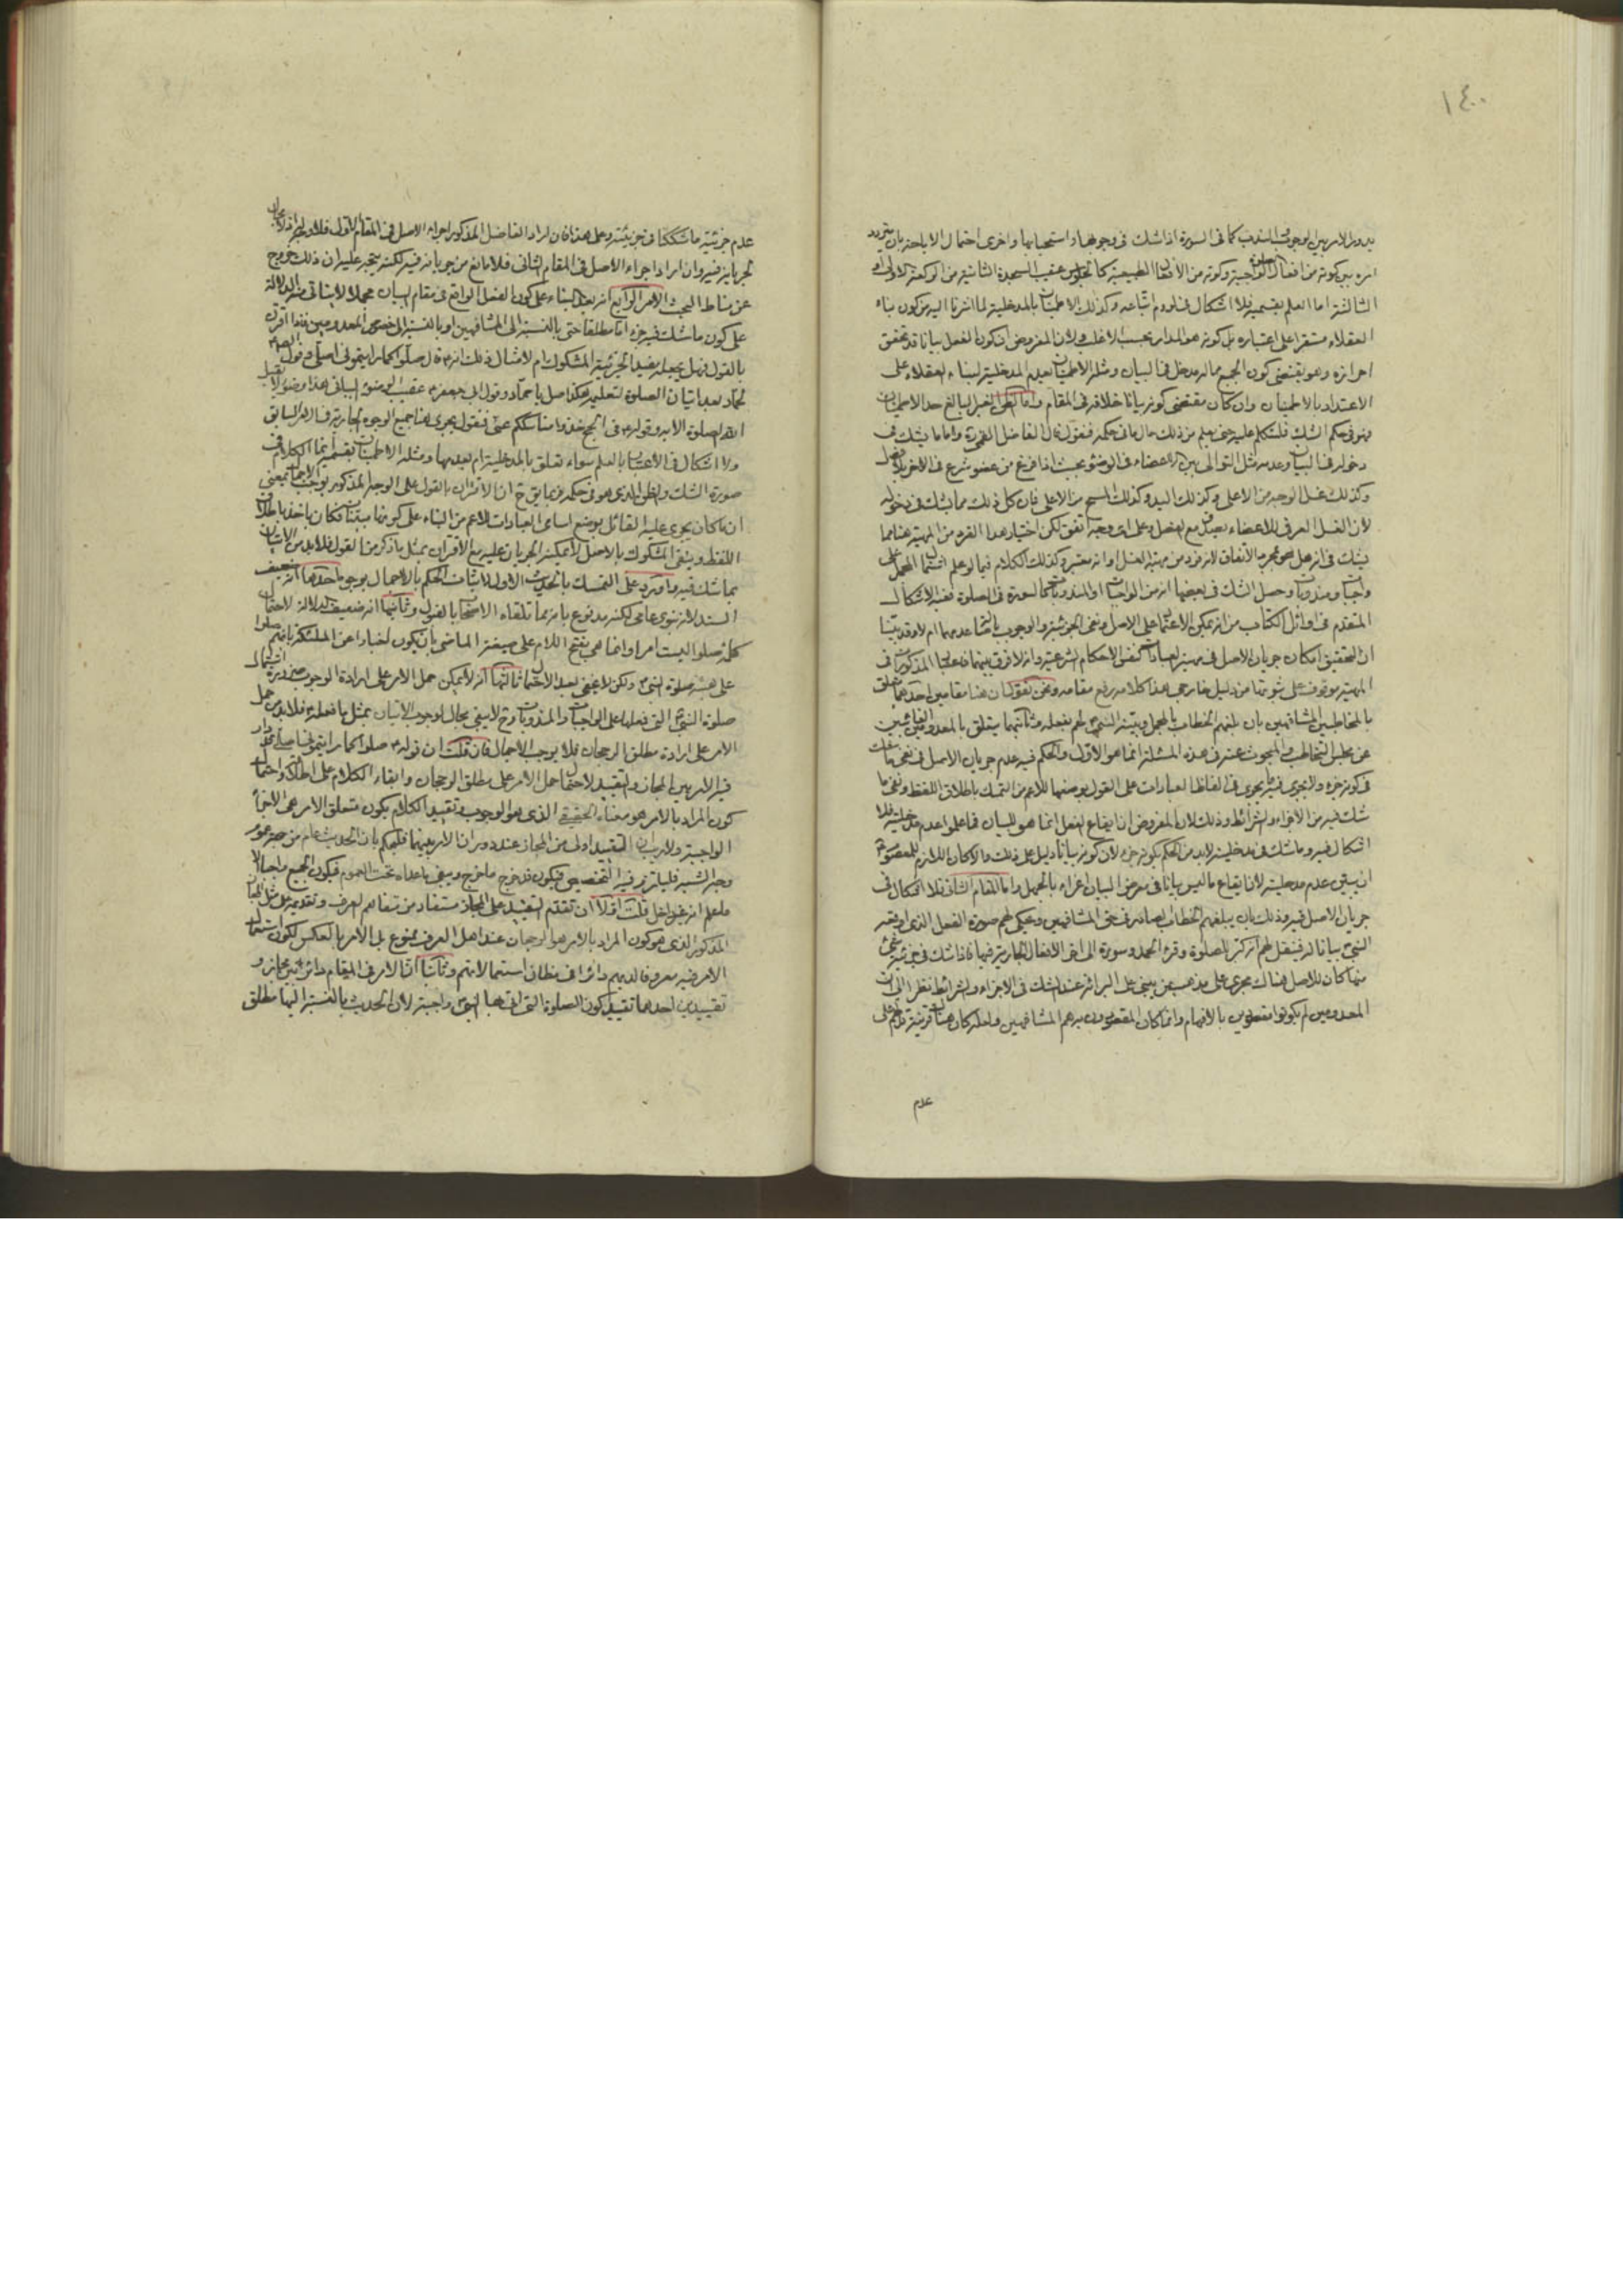 ١٤٠
يدور الامر بين الوجوب والندب كما فى السورة اذا شك فى وجوبها واستحبابها واخرى احتمال الاباحة بان يتردد
امره بين كونه من افعال الصلوة الواجبة وكونه من الأفعال الطبيعية كالجلوس عقيب السجدة الثانية من الركعة الاولى او
الثالثة اما العلم بقسميه فلا اشكال فى لزوم اتباعه وكذلك الاطمينان بالمدخلية لما اشرنا اليه من كون بناء
العقلاء مستقرا على اعتباره بل كونه هو المدار بحسب الاغلب ولان المفروض ان كون الفعل بيانا قد تحقق
احرازه وهو يقتضى كون الجميع مما له مدخل فى البيان ومثله الاطمينان بعدم المدخلية لبناء العقلاء على
الاعتداد بالاطمينان وان كان مقتضى كونه بيانا خلافه فى المقام واما الظن الغير البالغ حد الاطمينان
فهو فى حكم الشك فلنتكلم عليه حتى يعلم من ذلك حال ما فى حكمه فنقول قال الفاضل القمى ره واما ما يشك فى
دخوله فى البيان وعدمه مثل التوالى بين الاعضاء فى الوضوء بحيث اذا فرغ من عضو شرع فى الاخر بلا فصل
وكذلك غسل الوجه من الاعلى وكذلك اليد وكذلك المسح من الاعلى فان كل ذلك مما يشك فى دخوله
لان الغسل العرفى للاعضاء يصدق مع الفصل وعلى اى وجه اتفق لكن اختيار هذا الفرد من المهية هنا مما
يشك فى انه هل هو لمجرد الاتفاق لانه فرد من مهية الغسل او انه معتبر وكذلك الكلام فيما لو علم اشتمال المجمل على
واجبات ومندوبات وحصل الشك فى بعضها انه من الواجبات او المندوبات كالسورة فى الصلوة ففيه الاشكال
المتقدم فى اوائل الكتاب من انه يمكن الاعتماد على الاصل ونفى الجزئية والوجوب باصالة عدمهما ام لا وقد بينا
ان التحقيق امكان جريان الاصل فى مهية العبادات كنفس الاحكام الشرعية وانه لا فرق بينهما
المهية موقوف على ثبوتها من دليل خارجى هذا كلامه رفع مقامه ونحن نقول ان هنا مقامين احدهما يتعلق
بالمخاطبين المشافهين بان بلغهم الخطاب بالمجمل وبينه النبى ص لهم بفعله وثانيهما يتعلق بالمعدومين والغائبين
عن مجلس التخاطب والمبحوث عنه فى هذه المسئلة انما هو الاول والحكم فيه عدم جريان الاصل فى نفى ما شك
فى كونه جزء ولا يجرى فيه ما يجرى فى الفاظ العبادات على القول بوضعها للاعم من التمسك باطلاق اللفظ ونفى ما
شك فيه من الاجزاء والشرائط وذلك لان المفروض ان ايقاع الفعل انما هو للبيان فما علموا عدم مدخليته فلا
اشكال فيه وما شك فى مدخليته لا بد من الحكم بكونه جزء لان كونه بيانا دليل على ذلك والا كان اللازم للمعصوم ع
ان يبين عدم مدخليته لان ايقاع ما ليس بيانا فى معرض البيان اغراء بالجهل واما المقام الثانى فلا اشكال فى
جريان الاصل فيه وذلك بان يبلغهم الخطاب الصادر فى حق المشافهين ويحكى لهم صورة الفعل الذى اوقعه
النبى ص بيانا له فينقل لهم انه كبر للصلوة وقرء الحمد وسورة الى اخر الافعال الجارية فيها فاذا شك فى جزئية شئ
منها كان للاصل هناك مجرى على مذهب من يبنى على البرائة عند الشك فى الاجزاء والشرائط نظرا الى ان
المعدومين لم يكونوا مقصودين بالافهام وانما كان المقصودون به هم المشافهين ولعله كان هناك قرينة تدلهم على
عدم
عدم جزئية ما شككنا فى جزئيته وعلى هذا فان اراد الفاضل المذكور اجراء الاصل فى المقام الاول فلا وجه له اذ لا مجال
لجريانه فيه وان اراد اجراء الاصل فى المقام الثانى فلا مانع من جريانه فيه لكنه يتجه عليه ان ذلك خروج
عن مناط البحث الامر الرابع انه بعد البناء على كون الفعل الواقع فى مقام البيان مجملا لابتنائه الدلالة
على كون ما شك فيه جزء اما مطلقا حتى بالنسبة الى المشافهين او بالنسبة الى خصوص المعدومين فاذا اقترن
بالقول فهل يجعله مفيدا لجزئية المشكوك ام لا مثال ذلك انه ص قال صلوا كما رايتمونى اصلى وقول الصادق ع
لحماد بعد اتيان الصلوة لتعليمه هكذا صل يا حماد وقول ابى جعفر ع عقيب الوضوء البيانى هذا وضوء لا يقبل
الله الصلوة الا به وقوله ص فى الحج خذوا مناسككم عنى فنقول يجرى هنا جميع الوجوه الجارية فى الامر السابق
ولا اشكال فى الاعتبار بالعلم سواء تعلق بالمدخلية ام بعدمها ومثله الاطمينان بقسميه انما الكلام فى
صورة الشك والظن الذى هو فى حكمه فربما يق ح ان الاقتران بالقول على الوجه المذكور يوجب الاجمال بمعنى
ان ما كان يجرى عليه القائل بوضع اسامى العبادات للاعم من البناء على كونها مبينات فكان ياخذ باطلاق
اللفظ وينفى المشكوك بالاصل لا يمكنه الجريان عليه مع الاقتران بمثل ما ذكر من القول فلا بد من الاتيان
بما شك فيه واورد على التمسك بالحديث الاول لاثبات الحكم بالاجمال بوجوه احدها انه ضعيف
السند لانه نبوى عامى لكنه مدفوع بانه مما تلقاه الاصحاب بالقبول وثانيها انه ضعيف الدلالة لاحتمال
كلمة صلوا ليست امرا وانما هى بفتح اللام على صيغة الماضى بان يكون اخبارا عن الملئكة بانهم صلوا
على هيئة صلوة النبى ص ولكن لا يخفى بعد الاحتمال ثالثها انه لا يمكن حمل الامر على ارادة الوجوب ضرورة اشتمال
صلوة النبى ص التى فعلها على الواجبات والمندوبات وح لا يبقى مجال لوجوب الاتيان بمثل ما فعله ص فلا بد من حمل
الامر على ارادة مطلق الرجحان فلا يوجب الاجمال فان قلت ان قوله ص صلوا كما رايتمونى اصلى قد دار
فيه الامر بين المجاز والتقييد لاحتمال حمل الامر على مطلق الرجحان وابقاء الكلام على اطلاقه واحتمال
كون المراد بالامر هو معناه الحقيقى الذى هو الوجوب وتقييد الكلام بكون متعلق الامر هى الاجزاء
الواجبة ولا ريب ان التقييد اولى من المجاز عند دوران الامر بينهما فليحكم بان الحديث عام من جهة عموم
وجه الشبه فليلتزم فيه التخصيص فيكون قد خرج ما خرج ويبقى ما عداه تحت العموم فيكون الجميع واجبا الا
ما علم انه غير داخل قلت اولا ان تقدم التقييد على المجاز مستفاد من تفاهم العرف وتقديمه على مثل المجاز
المذكور الذى هو كون المراد بالامر هو الرجحان عند اهل العرف ممنوع بل الامر بالعكس لكون استعمال
الامر فيه معروفا لديهم دائرا فى مظان استعمالاتهم وثانيا ان الامر فى المقام دائر بين مجاز و
تقييدين احدهما تقييد كون الصلوة التى اتى بها النبى ص واجبة لان الحديث بالنسبة اليها مطلق